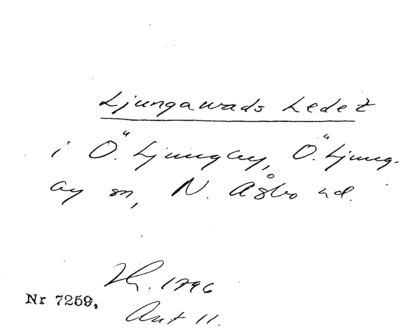 Ljungawads Ledet
i Ö. Ljungby, Ö. Ljung-
by sn, N. Åsbo hd.
1796
Nr 7259.
Akt 11.